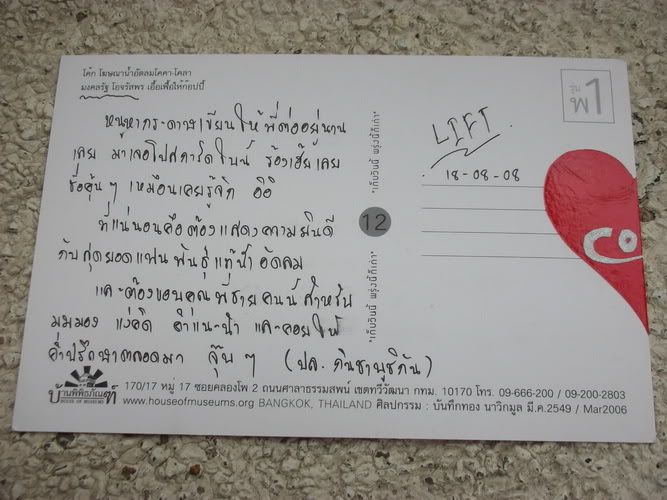 โค้ก โฆษณาน้ำอัดลมโคคา-โคลา
มงคลรัฐ โอจรัสพร เอื้อเพื้อให้ก๊อปปี้
หนูหากระดาษเขียนให้พี่ต่ออยู่นาน
เลย มาเจอโปสการ์ดใบนี้ ร้องเฮ้ย เลย
ชื่อคุ้น ๆ เหมือนเคยรู้จัก อิอิ
ที่แน่นอนคือต้องแสดงความยินดี
กับสุดยอดแฟนพันธุ์แท้น้ำอัดลม
และต้องขอบคุณพี่ชายคนนี้สำหรับ
มุมมอง แง่คิด คำแนะนำ และคอยให้
คำปรึกษาตลอดมา จุ๊บ ๆ (ปล.
"เก็บวันนี้ พรุ่งนี้ก็เก่า"
12
"เก็บวันนี้ พรุ่งนี้ก็เก่า"
รุ่น
พ1
LIFT
18-08-08
Co
บ้านพิพิธภัณฑ์
HOUSE OF MUSEUMS
170/17 หมู่ 17 ซอยคลองโพ 2 ถนนศาลาธรรมสพน์ เขตทวีวัฒนา กทม. 10170 โทร. 09-666-200 / 09-200-2803
www.houseofmuseums.org BANGKOK, THAILAND ศิลปกรรม : บันทึกทอง นาวิกมูล มี.ค.2549 / Mar2006